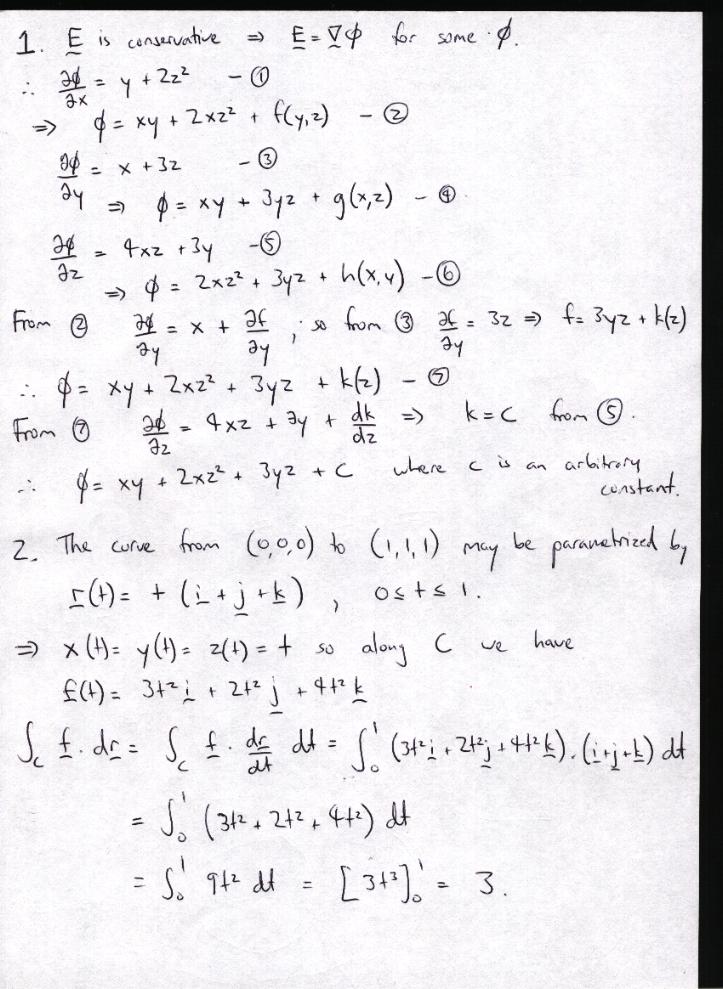 1. E is conservative ⇒ E = ∇ϕ for some ϕ.
∴ ∂ϕ/∂x = y + 2z² - ①
⇒ ϕ = xy + 2xz² + f(y,z) - ②
∂ϕ/∂y = x + 3z - ③
⇒ ϕ = xy + 3yz + g(x,z) - ④
∂ϕ/∂z = 4xz + 3y - ⑤
⇒ ϕ = 2xz² + 3yz + h(x,y) - ⑥
From ② ∂ϕ/∂y = x + ∂f/∂y ; so from ③ ∂f/∂y = 3z ⇒ f = 3yz + k(z)
∴ ϕ = xy + 2xz² + 3yz + k(z) - ⑦
From ⑦ ∂ϕ/∂z = 4xz + 3y + dk/dz ⇒ k = c from ⑤.
∴ ϕ = xy + 2xz² + 3yz + c where c is an arbitrary
constant.
2. The curve from (0,0,0) to (1,1,1) may be parametrized by
r(t) = t (i + j + k) , 0 ≤ t ≤ 1.
⇒ x(t) = y(t) = z(t) = t so along C we have
f(t) = 3t² i + 2t² j + 4t² k
∫_C f . dr = ∫_C f . dr/dt dt = ∫₀¹ (3t² i + 2t² j + 4t² k) . (i + j + k) dt
= ∫₀¹ (3t² + 2t² + 4t²) dt
= ∫₀¹ 9t² dt = [3t³]₀¹ = 3.